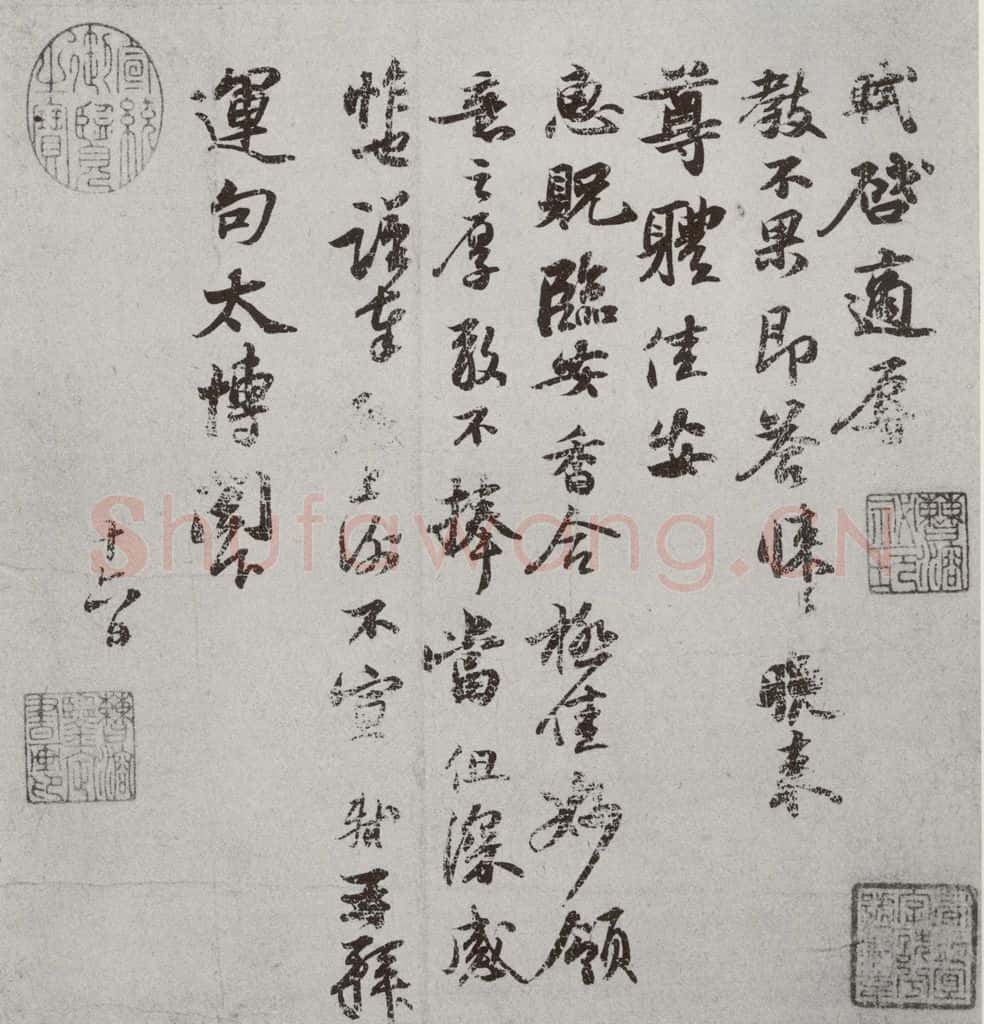 軾啓適辱
教不果即答悚〻晚来
尊體佳安
惠貺臨安香合極佳妙領
意之厚敢不捧當但深感
怍也謹奉 上謝不宣 軾再拜
運句太博閣下
十六日
宣統御覽之寶
Shufawang.CN